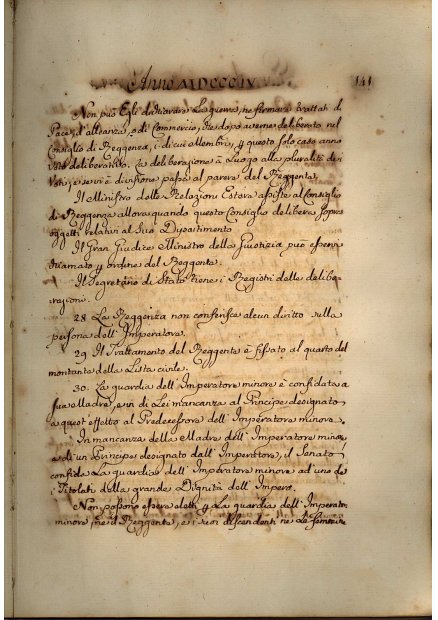 Anno MDCCCIV 141
Non può Egli dichiarare La guerra, ne firmare trattati di
Pace, d'alleanza, o di Commercio, che dopo averne deliberato nel
Consiglio di Reggenza, i di cui Membri, per questo solo caso anno
voto deliberativo. La deliberazione à Luogo alla pluralità de'
voti, e se vi è divisione passa al parere del Reggente.
Il Ministro delle Relazioni Estere assiste al Consiglio
di Reggenza allora quando questo Consiglio delibera sopra
oggetti relativi al suo Dipartimento
Il Gran Giudice Ministro della Giustizia può esservi
chiamato per ordine del Reggente.
Il Segretario di Stato tiene i Registri delle delibe-
razioni.
28 La Reggenza non conferisce alcun diritto sulla
persona dell'Imperatore.
29 Il Trattamento del Reggente è fissato al quarto del
montante della Lista civile.
30. La guardia dell'Imperatore minore è confidata a
sua Madre, e in di Lei mancanza al Principe designato
a quest'effetto al Predecessore dell'Imperatore minore.
In mancanza della Madre dell'Imperatore minore
e di un Principe designato dall'Imperatore, il Senato
confida La guardia dell'Imperatore minore ad uno de
i Titolati della grande Dignità dell'Impero.
Non possono essere eletti per La guardia dell'Imperator
minore ne il Reggente, e i suoi discendenti ne Le femmine